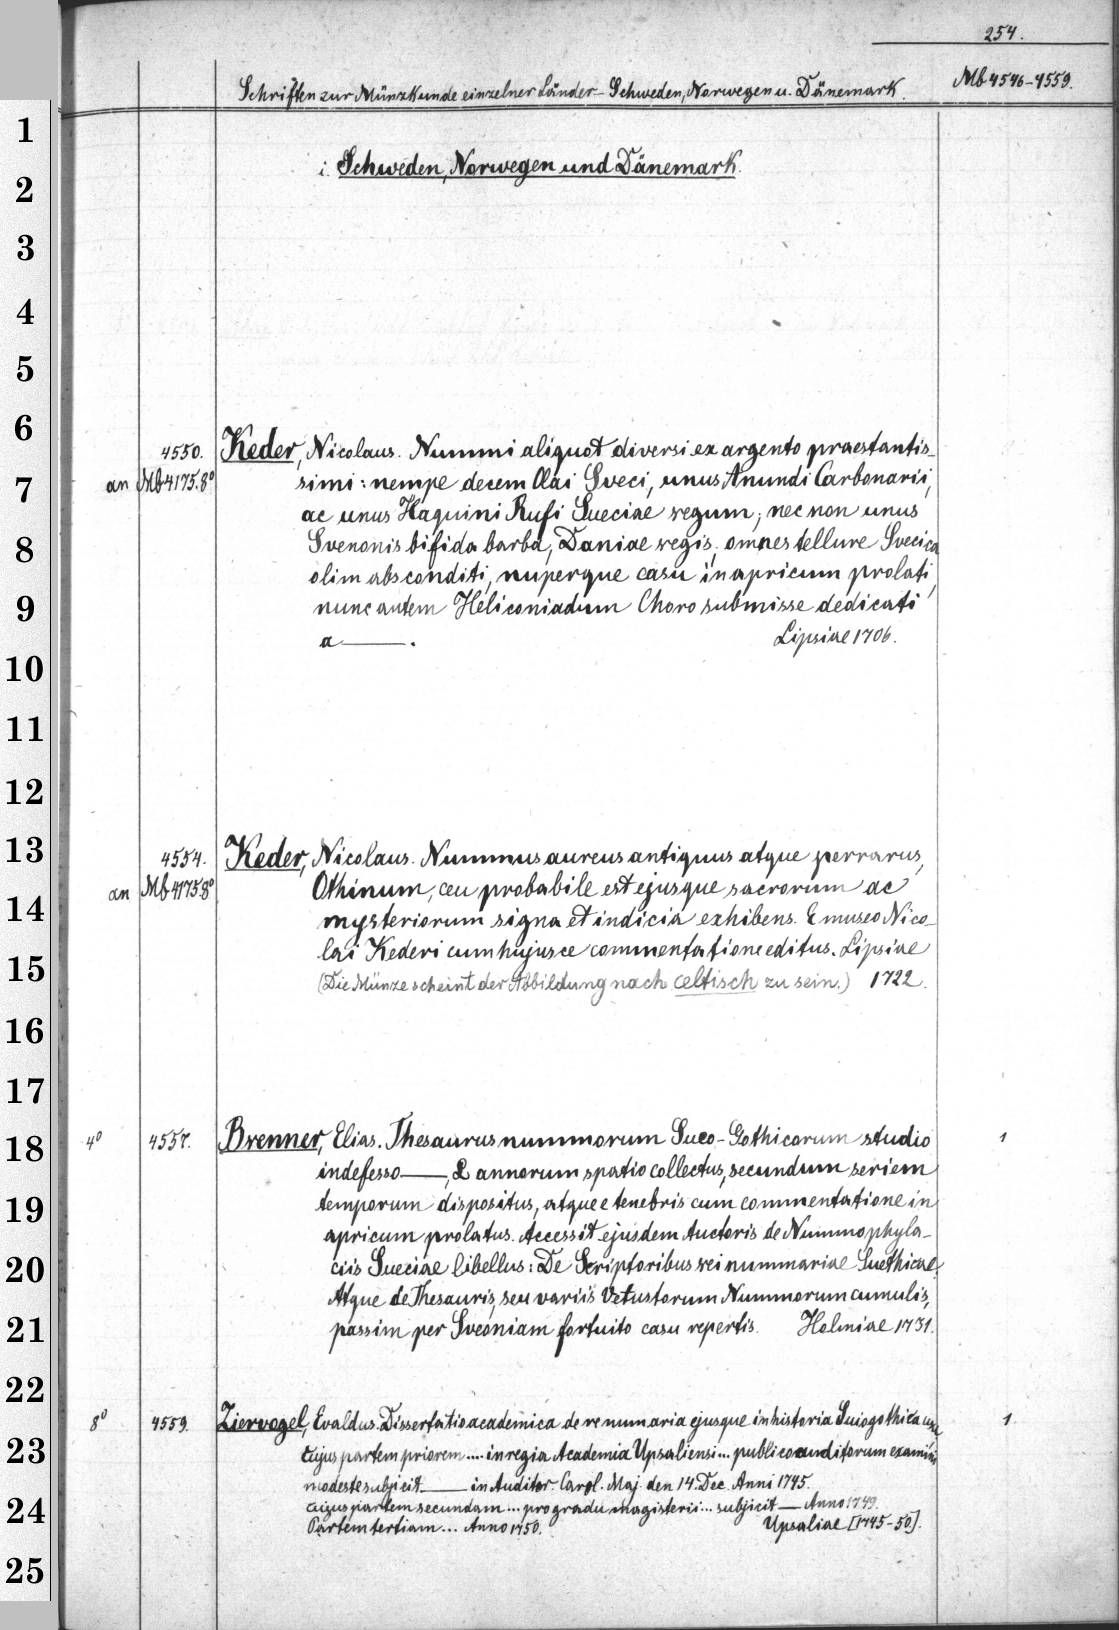 254.
Schriften zur Münzkunde einzelner Länder - Schweden, Norwegen u. Dänemark.
Mb 4546-4559.
i. Schweden, Norwegen und Dänemark.
4550. Keder, Nicolaus. Nummi aliquot diversi ex argento praestantis-
an Mb 4175.8° simi: nempe decem Olai Sveci, unus Anundi Carbonarii,
ac unus Haquini Rufi Sueciae regum; nec non unus
Svenonis bifida barba, Daniae regis, omnes tellure Svecica
olim absconditi, nuperque casu in apricum prolati,
nunc autem Heliconiadum Choro submisse dedicati
a ——. Lipsiae 1706.
4554. Keder, Nicolaus. Nummus aureus antiquus atque perrarus,
an Mb 4175 8° Othinum, ceu probabile est ejusque sacrorum ac
mysteriorum signa et indicia exhibens. E museo Nico-
lai Kederi cum hujusce commentatione editus. Lipsiae
(Die Münze scheint der Abbildung nach celtisch zu sein.) 1722.
4° 4557. Brenner, Elias. Thesaurus nummorum Sueo-Gothicorum studio 1
indefesso ——, L annorum spatio collectus, secundum seriem
temporum dispositus, atque e tenebris cum commentatione in
apricum prolatus. Accessit ejusdem Auctoris de Nummophyla-
ciis Sueciae libellus: De Scriptoribus rei nummariae Suethicae.
Atque de Thesauris, seu variis Vetustorum Nummorum cumulis,
passim per Sveoniam fortuito casu repertis. Holmiae 1731.
8° 4559. Ziervogel, Evaldus. Dissertatio academica de re numaria ejusque in historia Suiogothica usu 1.
cujus partem priorem .... in regia Academia Upsaliensi ... publico eruditorum examini
modeste subjicit —— in Auditor. Carol. Maj. den 14. Dec. Anni 1745.
cujus partem secundam ... pro gradu magisterii ... subjicit — Anno 1749.
Partem tertiam ... Anno 1750. Upsaliae [1745-50].
1
2
3
4
5
6
7
8
9
10
11
12
13
14
15
16
17
18
19
20
21
22
23
24
25